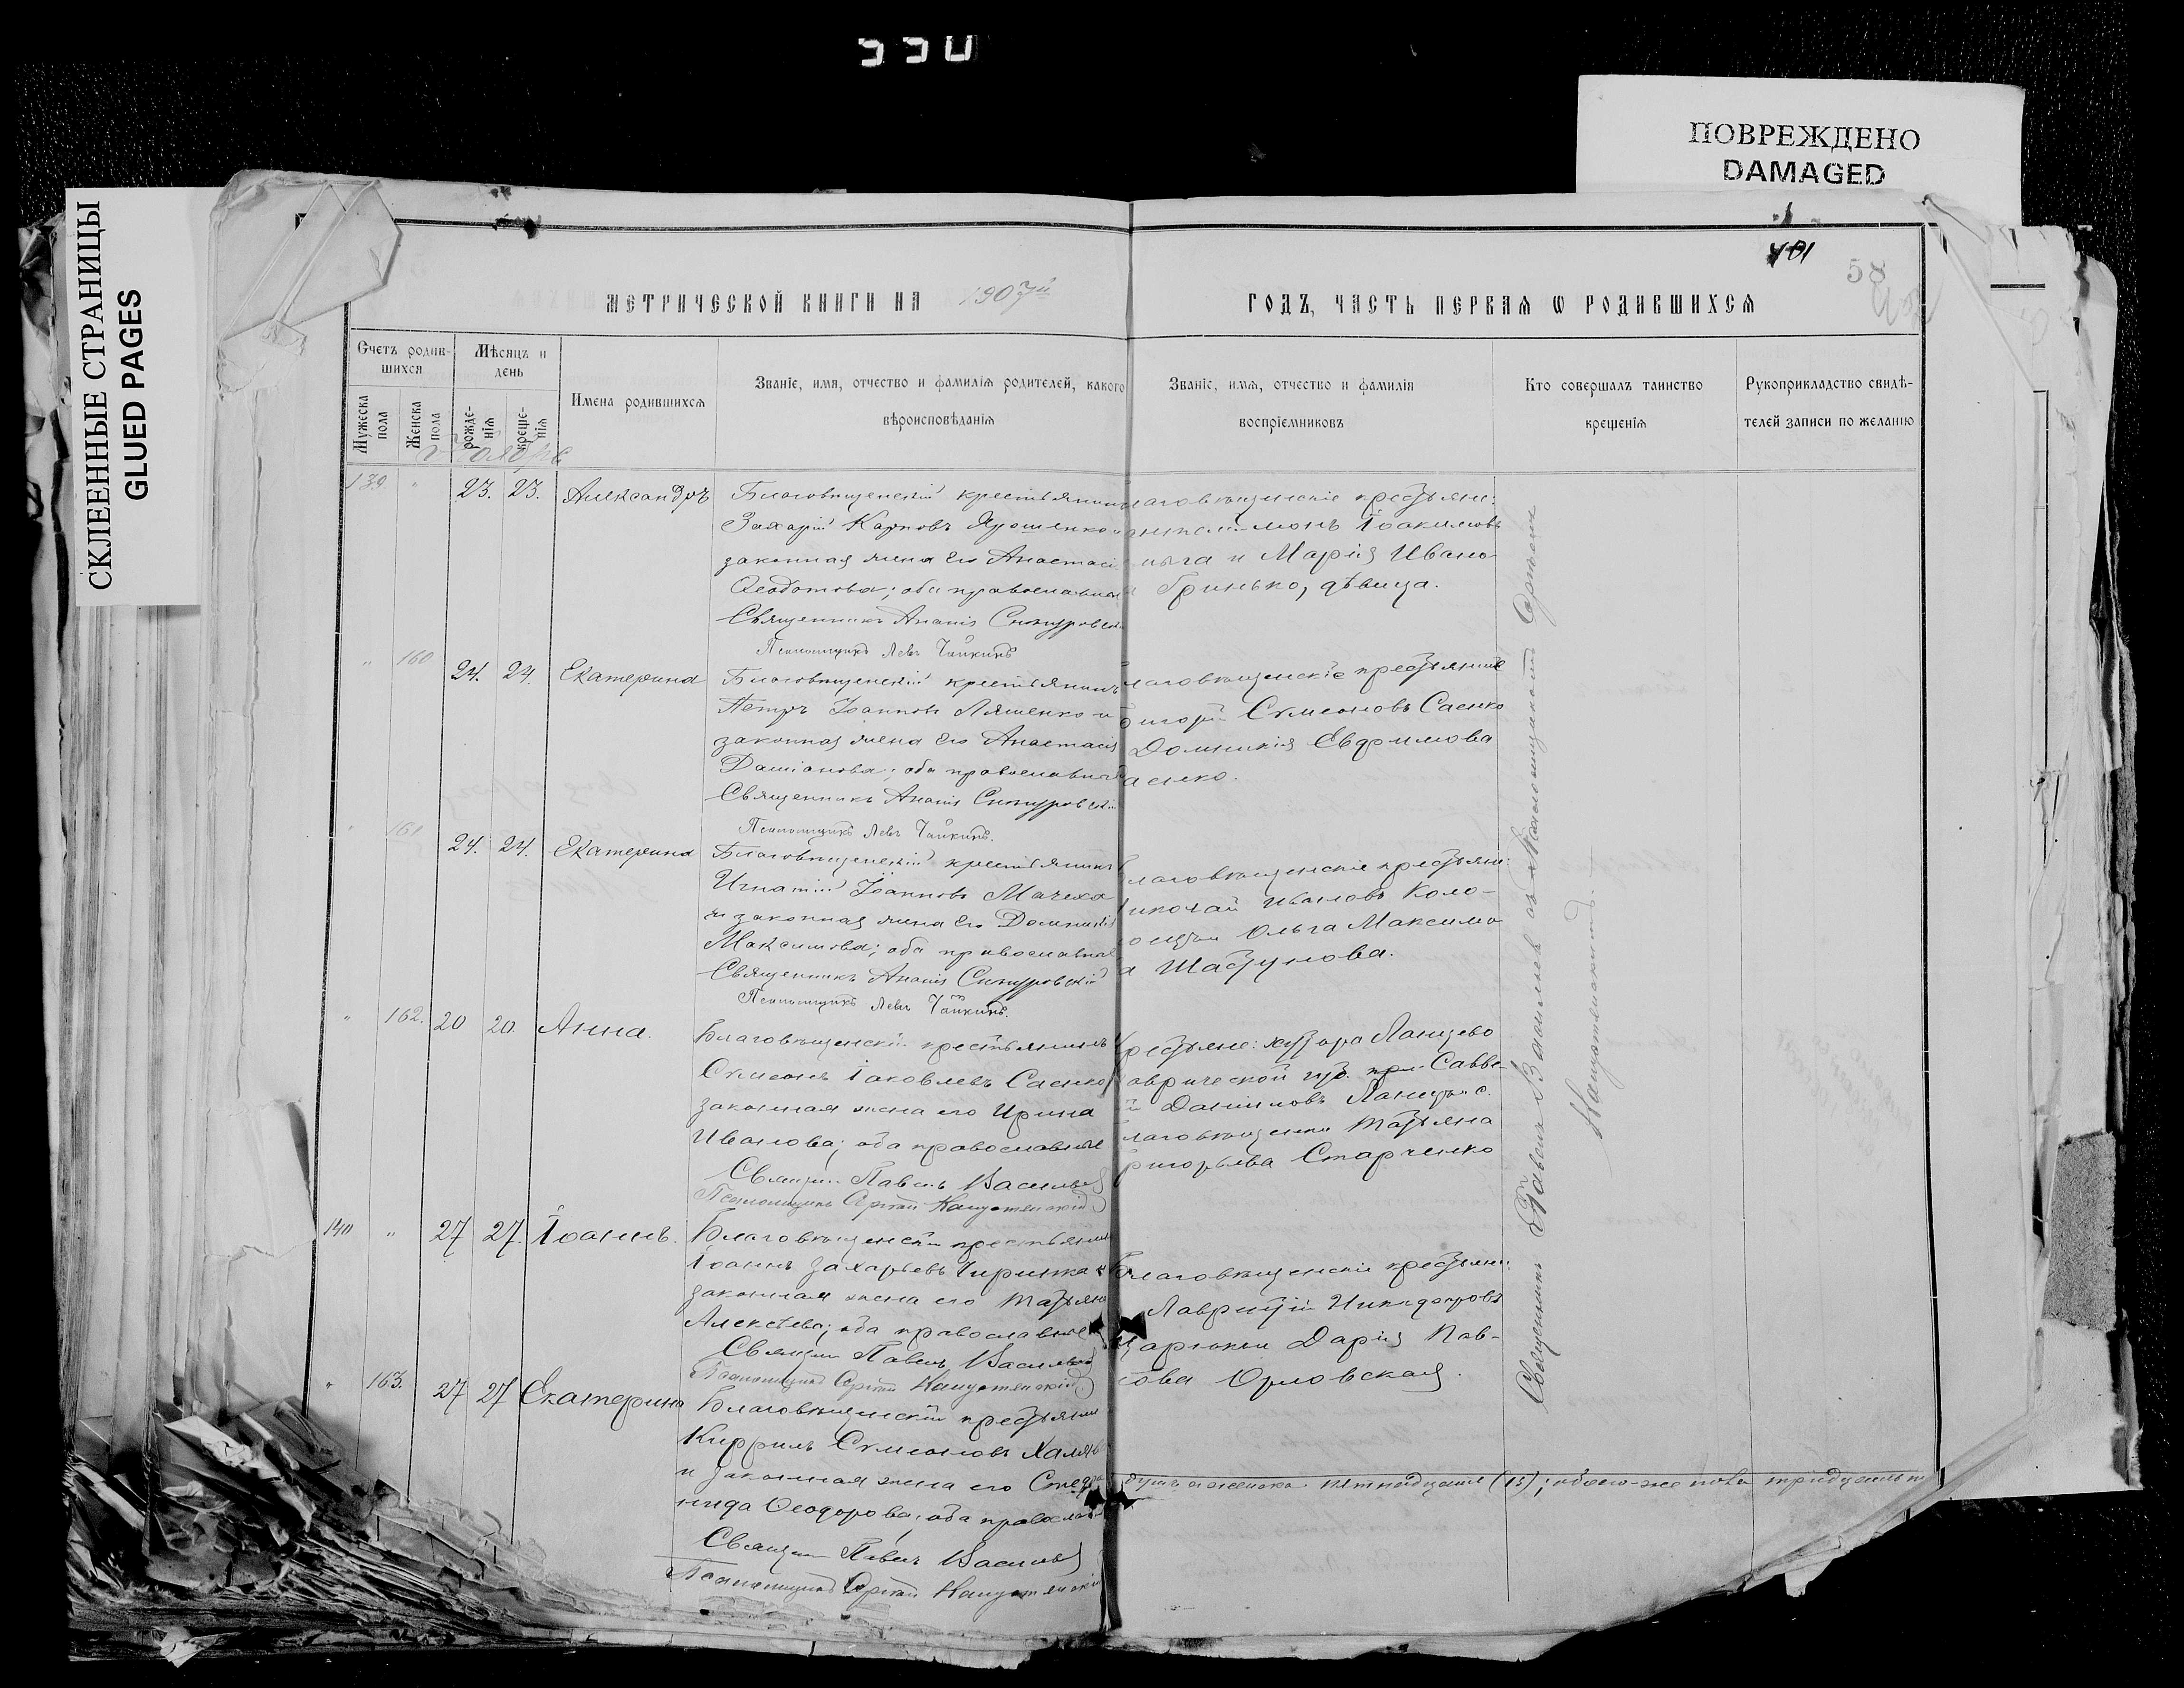 330
ПОВРЕЖДЕНО
DAMAGED
СКЛЕЕННЫЕ СТРАНИЦЫ
GLUED PAGES
401
58
МЕТРИЧЕСКОЙ КНИГИ НА 1907й ГОДЪ, ЧАСТЬ ПЕРВАЯ Ѡ РОДИВШИХСЯ
Счетъ родив-
шихся
Мужеска
пола
Женска
пола
Мѣсяцъ и
день
рожде-
нія
креще-
нія
Имена родившихся
Званіе, имя, отчество и фамилія родителей, какого
вѣроисповѣданія
Званіе, имя, отчество и фамилія
воспріемниковъ
Кто совершалъ таинство
крещенія
Рукоприкладство свидѣ-
телей записи по желанію
Ноября
139. " 23. 23. Александръ
Благовѣщенскій крестьянинъ
Захарій Карповъ Ярошенко и
законная жена его Анастасія
Ѳеодотова; оба православные
Священникъ Ананія
Псаломщикъ Левъ Чайкинъ
лаговѣщенскіе крестьяне:
Іоакимовъ
и Марія Ивано-
Гринько, дѣвица.
" 160 24. 24. Екатерина
Благовѣщенскій крестьянинъ
Петръ Іоанновъ Ляшенко и
законная жена его Анастасія
Даміанова; оба православные
Священникъ Ананія
Псаломщикъ Левъ Чайкинъ.
лаговѣщенскіе крестьяне
игорій Сѵмеоновъ Саенко
Домникія Евфимова
аенко.
" 161 24. 24. Екатерина
Благовѣщенскій крестьянинъ
Игнатій Іоанновъ Мачеха
и законная жена его Домникія
Максимова; оба православные
Священникъ Ананія
Псаломщикъ Левъ Чайкинъ.
лаговѣщенскіе крестьяне:
иколай Ивановъ Коло-
Ольга Максимо
а Шатунова.
" 162. 20 20. Анна.
Благовѣщенскій крестьянинъ
Сѵмеонъ Іаковлевъ Саенко
законная жена его Ирина
Иванова; оба православные
Священ. Павелъ Васильев
Псаломщикъ Сергій
рестьяне: хутора Ланцево
аврической губ. Савве-
й Даніиловъ с.
лаговѣщенки Татьяна
ригорьева Старченко
140 " 27 27. Іоаннъ.
Благовѣщенскій крестьянинъ
Іоаннъ Захарьевъ Чирилка и
законная жена его Татьяна
Алексѣева; оба православные
Священ Павелъ Васильев
Псаломщикъ Сергій
Благовѣщенскіе крестьяне:
Лаврентій Никифоровъ
Дарія Пав-
лова Орловская.
" 163. 27 27 Екатерина
Благовѣщенскій крестьянин
Кириллъ Сѵмеоновъ
и законная жена его Стефа
нида Ѳеодорова; оба православн
Священ Павелъ Васильев
Псаломщикъ Сергій
Священникъ Павелъ Васильев съ псаломщикомъ Сергіем
душъ а женска пятнадцать (15); обоего-же пола тридцать